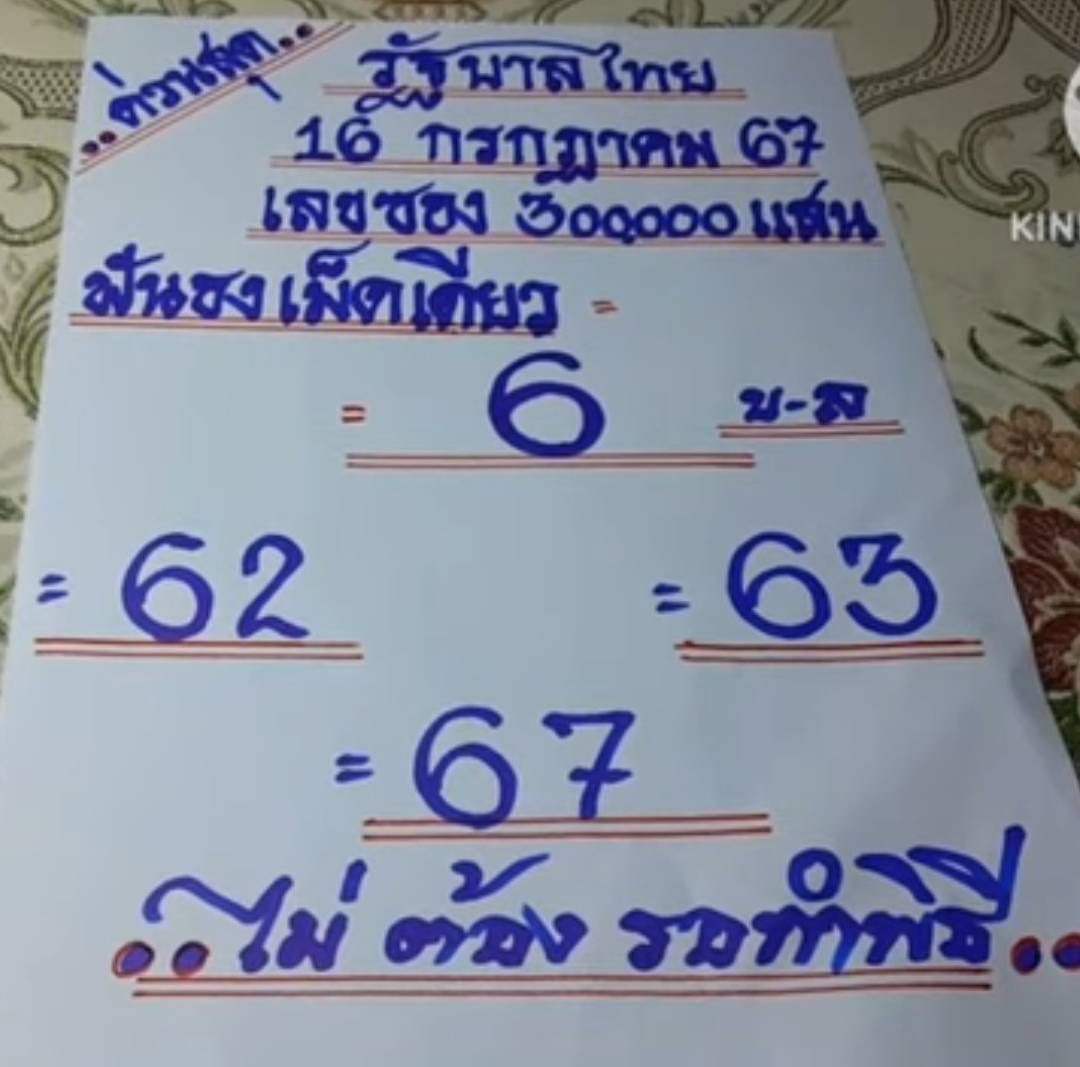 ..ด่วนสุด..
รัฐบาลไทย
16 กรกฎาคม 67
เลขซอง 300,000 แสน
ฟันธงเม็ดเดียว =
= 6 บ-ล
= 62 = 63
= 67
..ไม่ ต้อง รอทำพิธี..
KIN